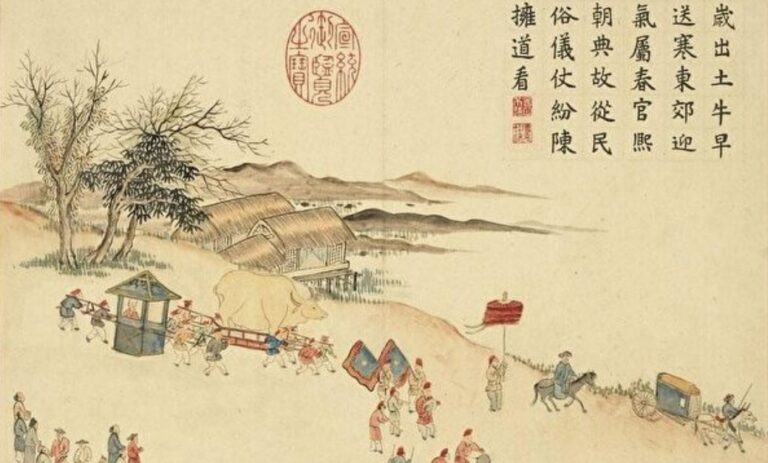 歲出土牛早
送寒東郊迎
氣屬春官熙
朝典故從民
俗儀仗紛陳
擁道看
宣統
御覽
之寶